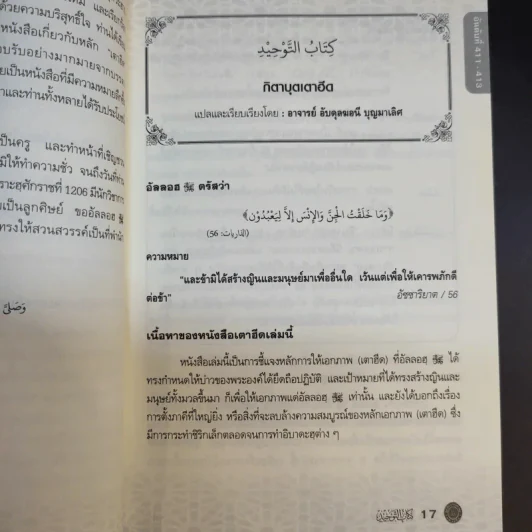 ด้วยความบริสุทธิ์ใจ ท่านได้เขียน
หนังสือเกี่ยวกับหลัก
อมรับอย่างมากมายจาก
ยเป็นหนังสือที่มีความหมาย
าและท่านทั้งหลายได้รับประโยชน์
ป็นครู และทำหน้าที่เชิญชวน
มิให้ทำความชั่ว จนถึงวันที่ท่าน
ราะฮฺศักราชที่ 1206 มีนักวิชาการ
ยเป็นลูกศิษย์ ขออัลลอฮฺ ﷻ
ทรงให้สวนสวรรค์เป็นที่พำนัก
وَصَلَّى
อันดับที่ 411 - 413
كِتَابُ التَّوْحِيْدِ
กิตาบุตเตาฮีด
แปลและเรียบเรียงโดย : อาจารย์ อับดุลฆอนี บุญมาเลิศ
อัลลอฮฺ ﷻ ตรัสว่า
﴿وَمَا خَلَقْتُ الْجِنَّ وَالْإِنْسَ إِلَّا لِيَعْبُدُوْنِ﴾
(الذاريات: 56)
ความหมาย
“และข้ามิได้สร้างญินและมนุษย์มาเพื่ออื่นใด เว้นแต่เพื่อให้เคารพภักดี
ต่อข้า” อัซซาริยาต / 56
เนื้อหาของหนังสือเตาฮีดเล่มนี้
หนังสือเล่มนี้เป็นการชี้แจงหลักการให้เอกภาพ (เตาฮีด) ที่อัลลอฮฺ ﷻ ได้
ทรงกำหนดให้บ่าวของพระองค์ได้ยึดถือปฏิบัติ และเป้าหมายที่ได้ทรงสร้างญินและ
มนุษย์ทั้งมวลขึ้นมา ก็เพื่อให้เอกภาพแด่อัลลอฮฺ ﷻ เท่านั้น และยังได้บอกถึงเรื่อง
การตั้งภาคีที่ใหญ่ยิ่ง หรือสิ่งที่จะลบล้างความสมบูรณ์ของหลักเอกภาพ (เตาฮีด) ซึ่ง
มีการกระทำชิริกเล็กตลอดจนการทำอิบาดะฮฺต่าง ๆ
كتاب التوحيد 17